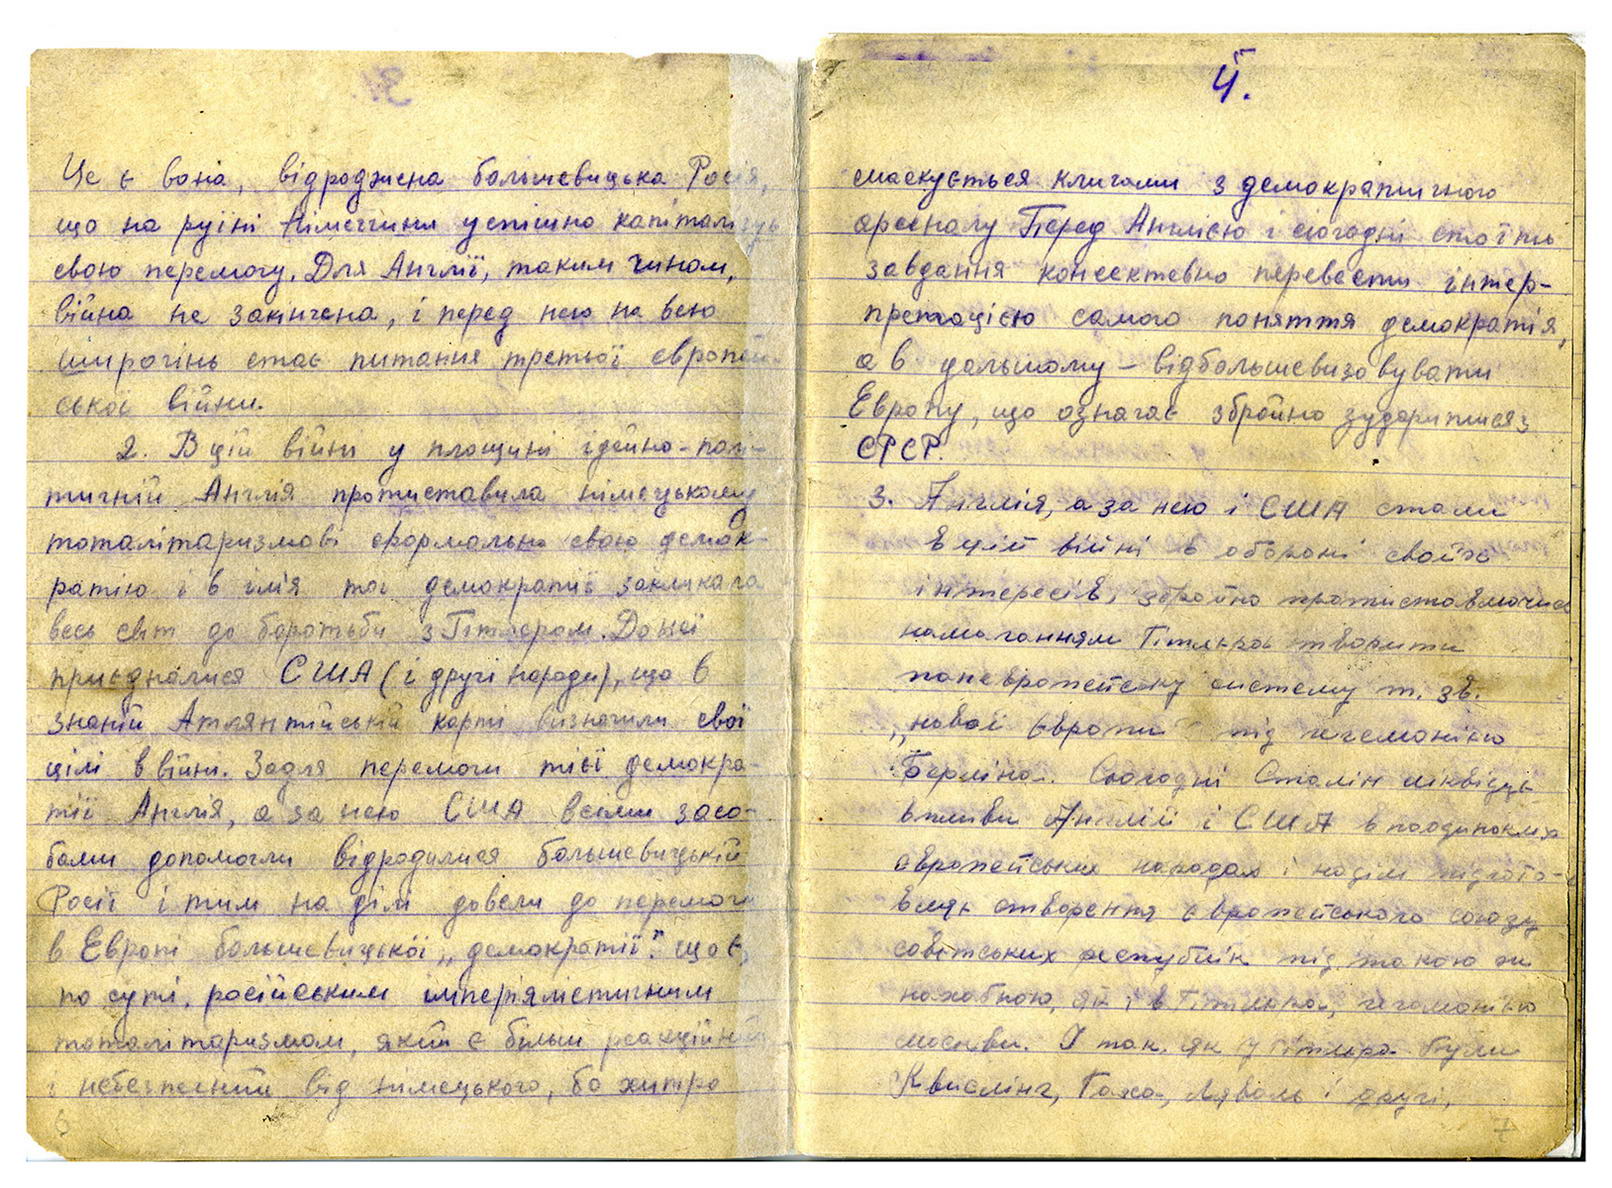 Це є вона, відроджена большевицька Росія,
що на руїні Німеччини успішно капіталізує
свою перемогу. Для Англії, таким чином,
війна не закінчена, і перед нею на всю
широчінь стає питання третьої європей-
ської війни.
2. В цій війни у площині ідейно-полі-
тичній Англія протиставила німецькому
тоталітаризмові формально свою демок-
ратію і в ім'я тої демократії закликала
весь світ до боротьби з Гітлером. До неї
приєдналися США (і другі народи), що в
знаній Атлянтійській карті визначили свої
цілі в війни. Задля перемоги тієї демокра-
тії Англія, а за нею США всіми засо-
бами допомогли відродитися большевицькій
Росії і тим на ділі довели до перемоги
в Европі большевицької „демократії" що є,
по суті, російським імперіялістичним
тоталітаризмом, який є більш реакційний
і небезпечний від німецького, бо хитро
6
4.
маскується кличами з демократичного
арсеналу Перед Англією і сьогодні стоїть
завдання консектевно перевести інтер-
претацією самого поняття демократія,
а в дальшому – відбольшевизовувати
Европу, що означає збройно зударитися з
СРСР.
3. Англія, а за нею і США стали
в цій війні в обороні своїх
інтересів, збройно протиставлючись
намаганням Гітлера творити
паневропейську систему т. зв.
„нової Європи" під гегемонією
Берліна. Сьогодні Сталін ліквідує
впливи Англії і США в поодиноких
европейських народах і надім підгото-
влять створення європейського союзу
совітських республік під такою ж
нахабною, як і в Гітлера, гегемонією
москви. І так, як у Гітлера були
Квислінг, Гаха, Ляваль і другі,
7